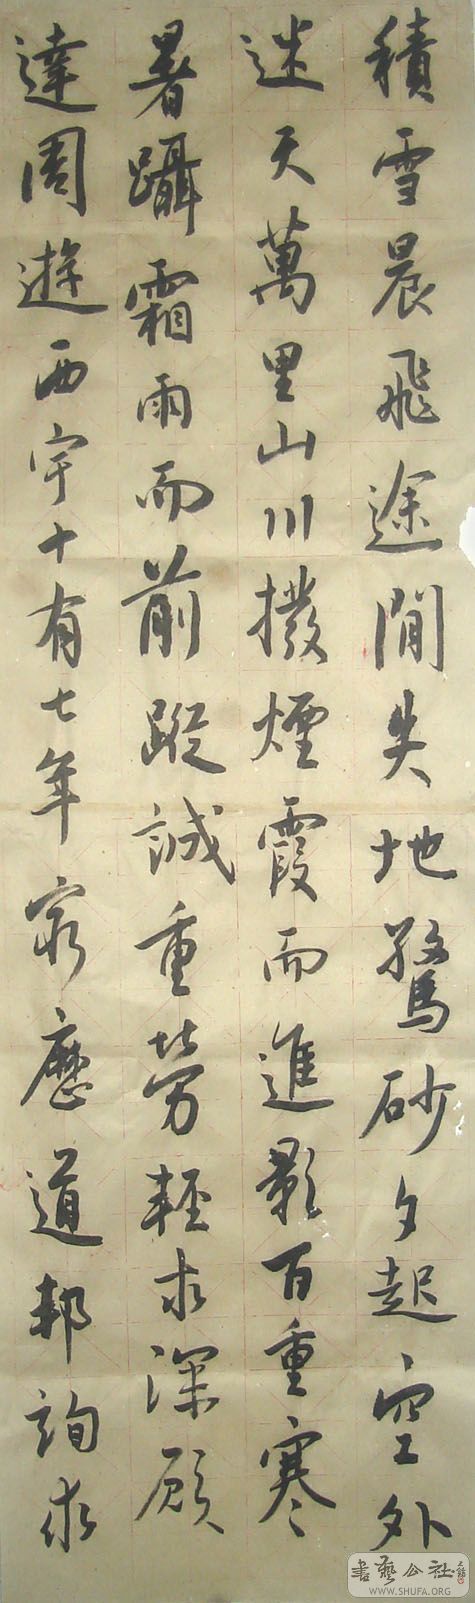 積雪晨飛途間失地驚砂夕起空外
迷天萬里山川撥煙霞而進影百重寒
暑躡霜雨而前蹤誠重勞輕求深願
達周遊西宇十有七年窮歷道邦詢求
書藝公社
WWW.SHUFA.ORG